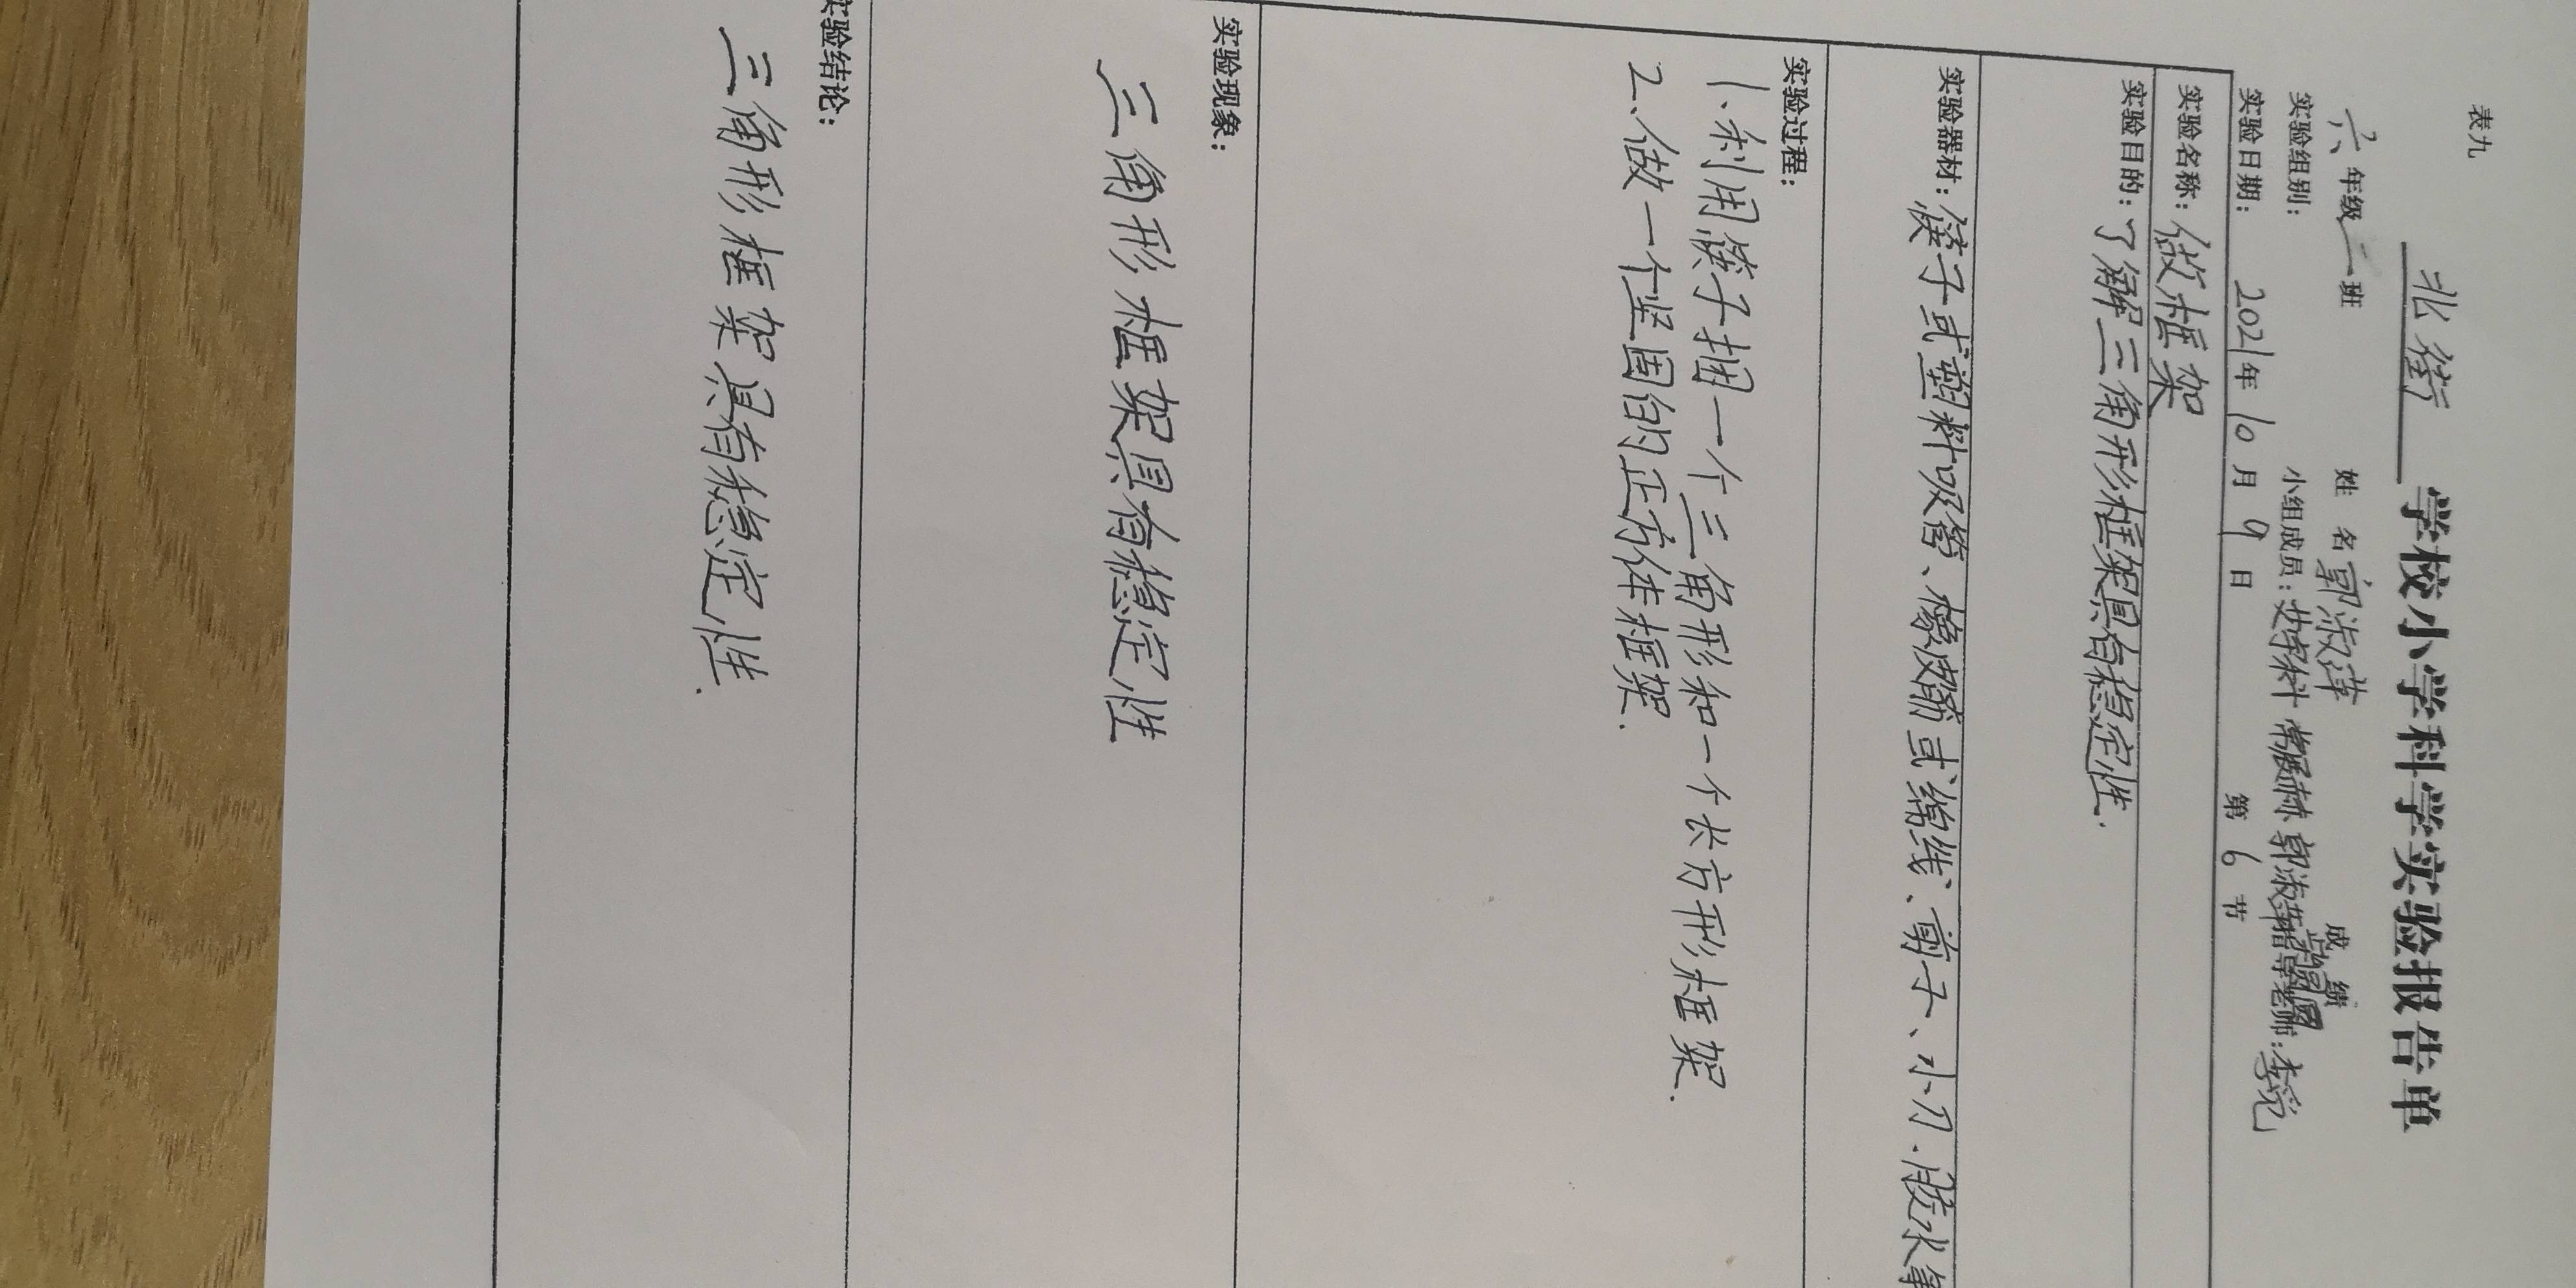 表九
北街学校小学科学实验报告单
六年级二班 姓 名 郭淑萍 成 绩
实验组别： 小组成员： 郭淑萍 指导老师：李
实验日期： 2021年10月9日 第6节
实验名称：做框架
实验目的：了解三角形框架具有稳定性.
实验器材：筷子或塑料吸管、橡皮筋或绵线、剪子、小刀.胶水等
实验过程：
1.利用筷子捆一个三角形和一个长方形框架.
2.做一个坚固的正方体框架.
实验现象：
三角形框架具有稳定性
实验结论：
三角形框架具有稳定性.